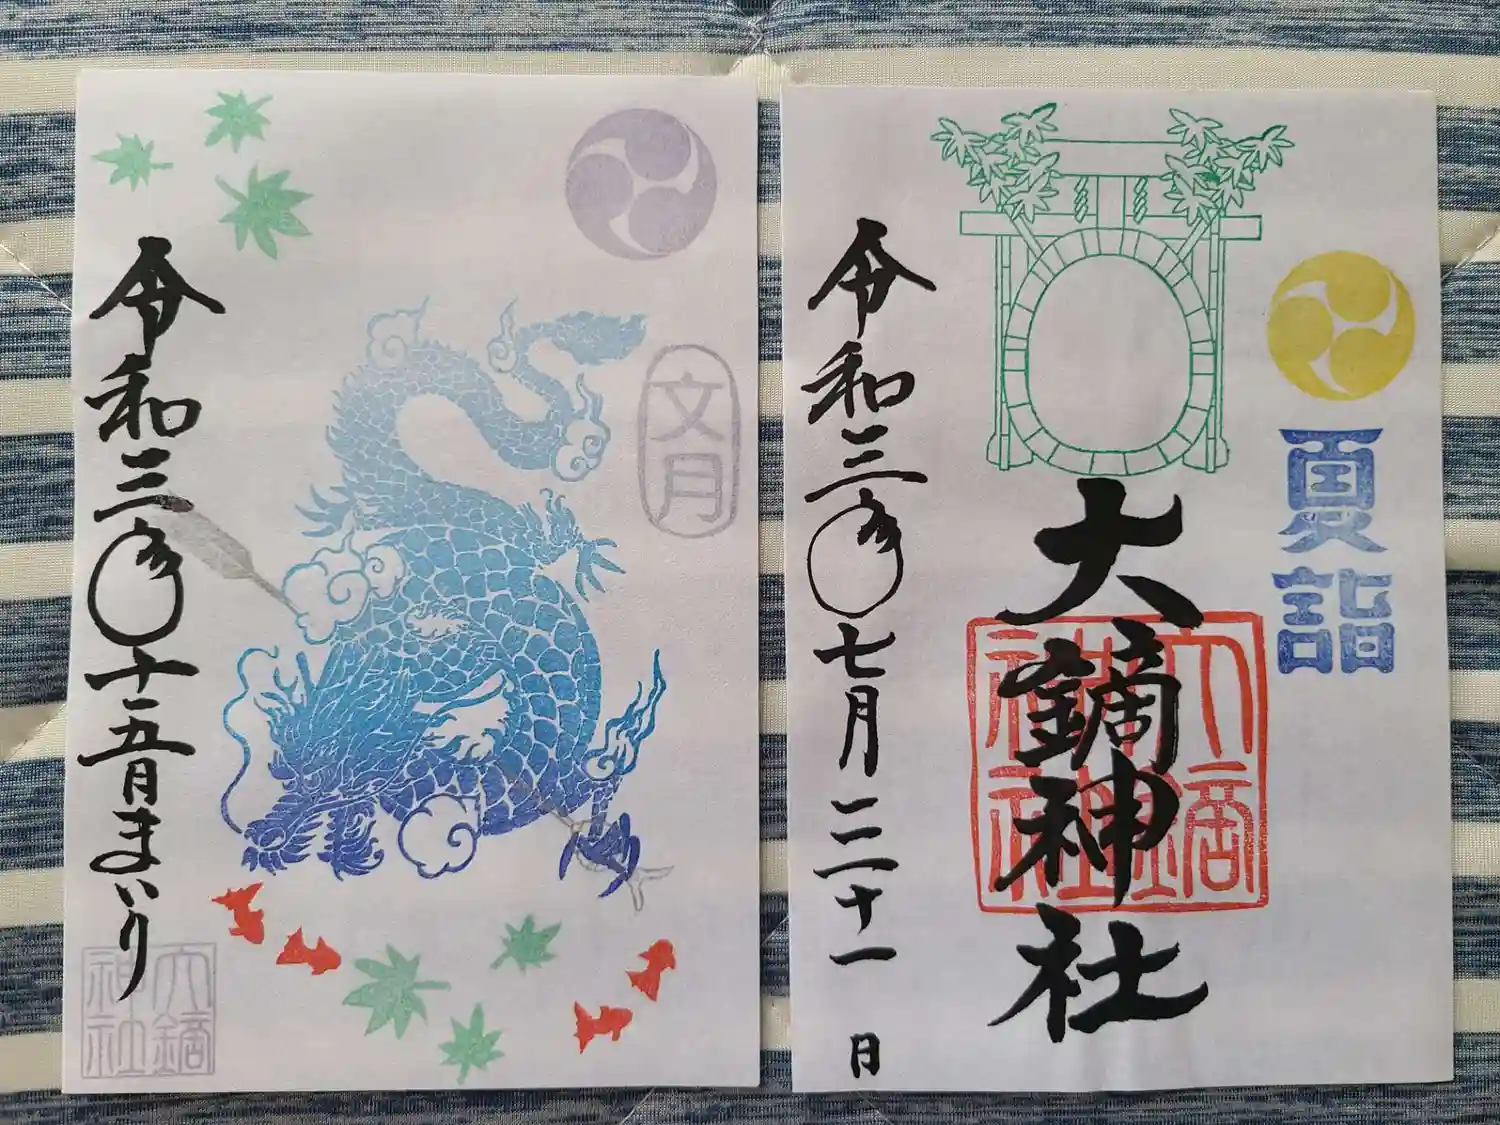 文月
令和三年十五月まいり
大鏑神社
夏詣
大鏑神社
大鏑神社
令和三年七月二十一日